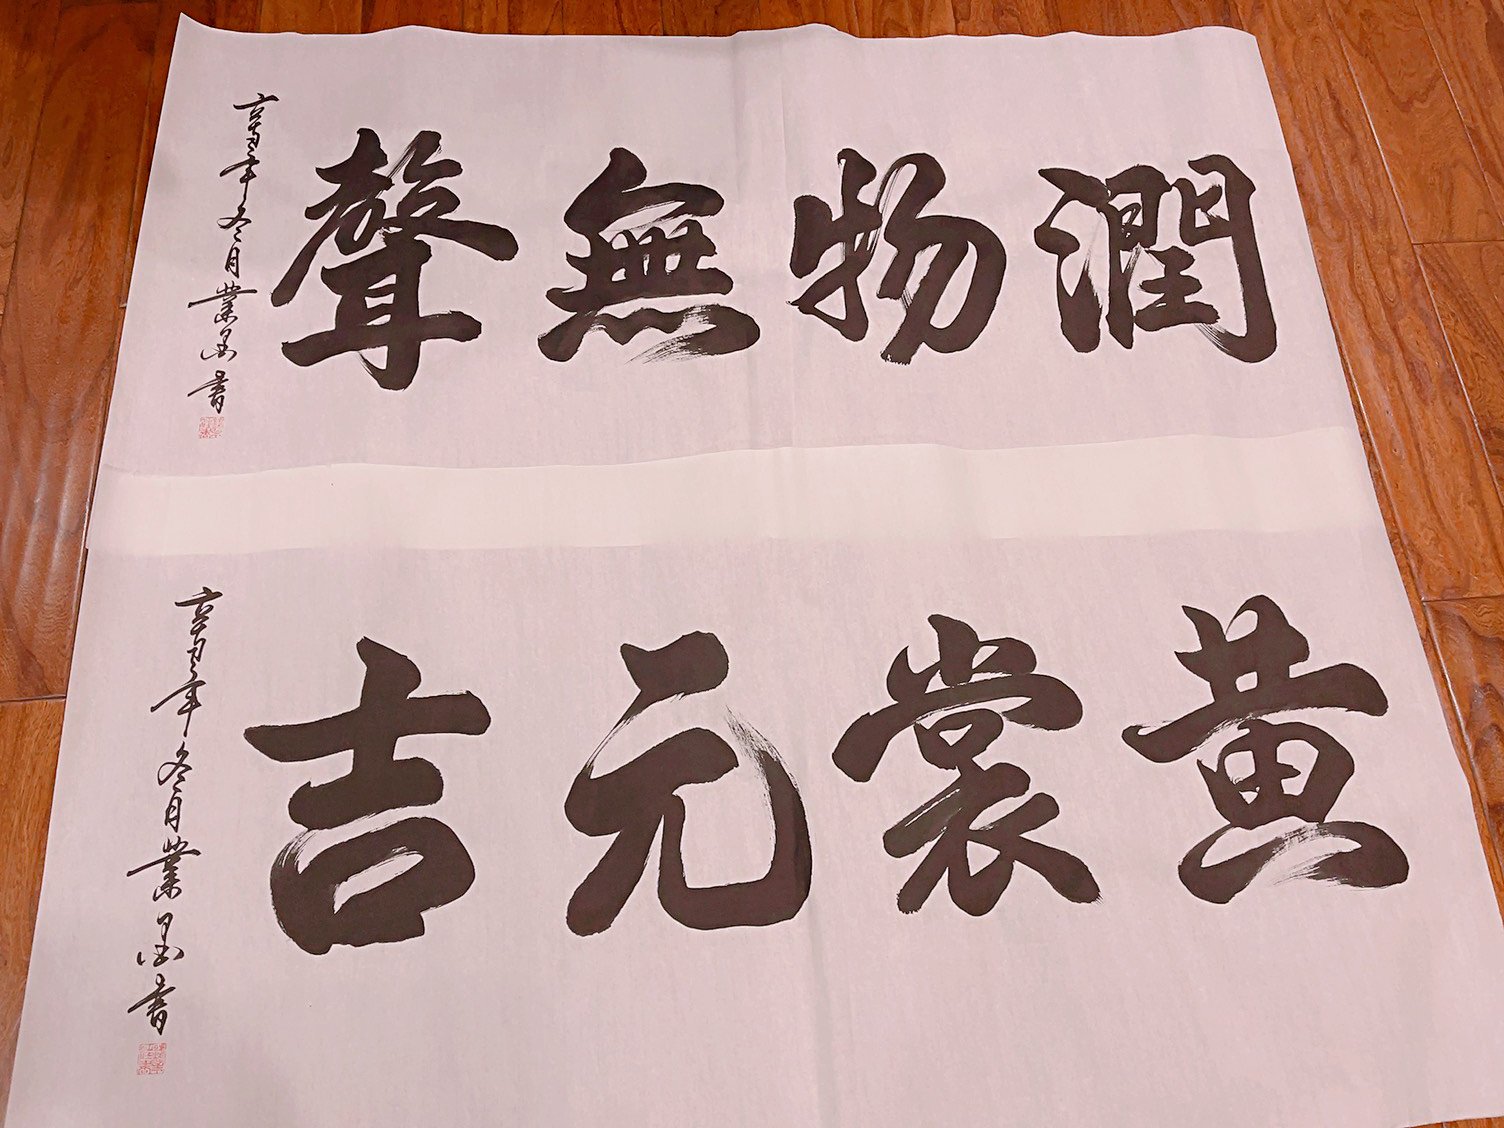 潤物無聲
辛丑年冬月業墨書
黄裳元吉
辛丑年冬月業墨書